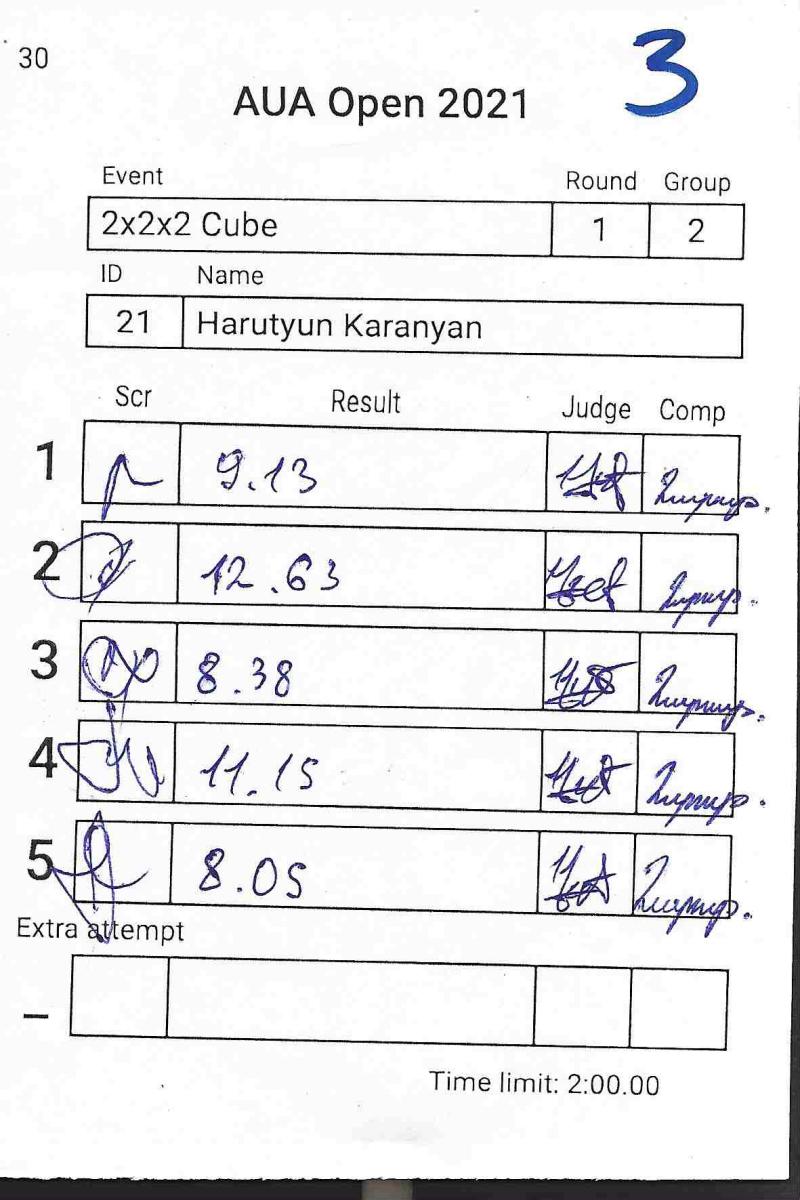 30
3
AUA Open 2021
Event Round Group
2x2x2 Cube 1 2
ID Name
21 Harutyun Karanyan
Scr Result Judge Comp
1 9.13
2 12.63
3 8.38
4 11.15
5 8.05
Extra attempt
_
Time limit: 2:00.00